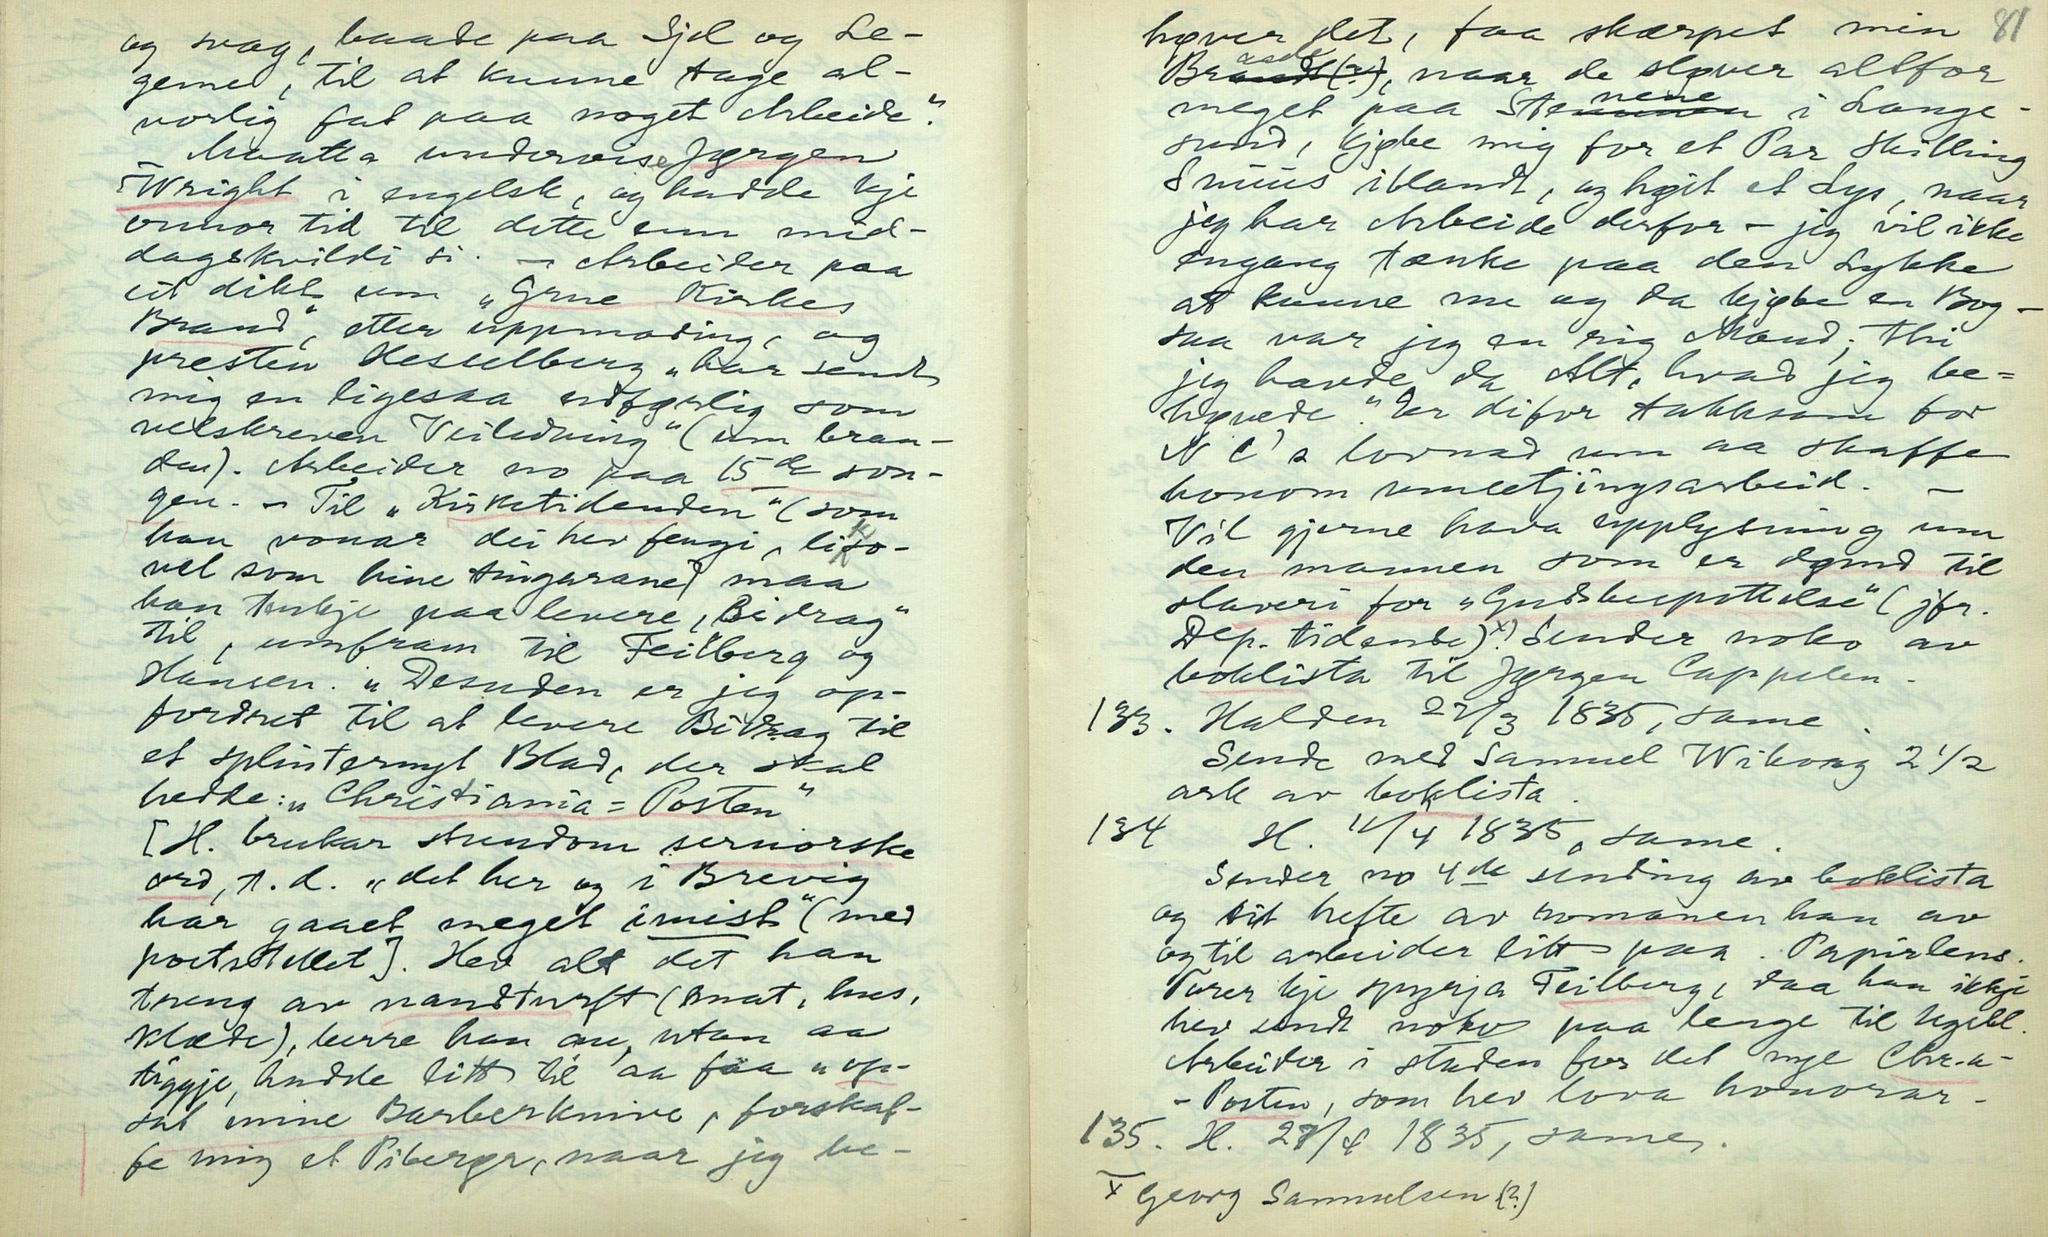 og svag, baade paa Sjel og Le-
geme, til at kunne tage al-
vorlig fat paa noget Arbeide".
– Maatta undervise Jørgen
Wright i engelsk, og hadde kje
onnor tid til dette enn mid-
dagskvildi si. – Arbeider paa
eit dikt um "Grue Kirkes
Brand", etter uppmoding, og
presten Hesselberg "har sendt
mig en ligesaa udførlig som
velskreven Veiledning" (um bran-
den). Arbeider no paa 15de son-
gen. – Til "Kirketidenden" (som
han vonar dei hev fengi, likso-
vel som hine tingarane) maa
han tenkje paa levere "Bidrag"
til, umfram til Feilberg og
Hansen. "Desuden er jeg op-
fordret til at levere Bidrag til
et splinternyt Blad, der skal
hedde: "Christiania=Posten"
[H. brukar stundom sernorske
ord, t.d. "det her og i Brevig
har gaaet meget imist" (med
poststellet]. Hev alt det han
treng av nandturft (mat, hus,
klæde), berre han au, utan aa
tiggje, hadde litt til aa faa "op-
sat mine Barberknive, forskaf-
fe mig et Piberør, naar jeg be-
81
høver det, faa skærpet min
Brandt(?), naar de sløver altfor
asde
meget paa Stennnen i Lange-
nene
sund, kjøbe mig for et Par Skilling
Snuus iblandt, og høit et Lys, naar
jeg har Arbeide derfor – jeg vil ikke
engang tænke paa den Lykke
at kunne nu og da kjøbe en Bog –
saa var jeg en rig Mand; thi
jeg havde da Alt, hvad jeg be=
høvede." Er difor takksam for
N C's lovnad um aa skaffe
honom umsetjingsarbeid. –
Vil gjerne hava upplysning um
den mannen som er dømd til
slaveri for "Gudsbespottelse" (jfr.
Dep. tidende)x). Sender noko av
boklista til Jørgen Cappelen.
133. Halden 27/3 1835, same.
Sende med Samuel Wiborg 2 1/2
ark av boklista.
134 H. 11/4 1835, same.
Sender no 4de sending av boklista
og eit hefte av romanen han av
og til arbeider litt paa. Papirlens.
Torer kje spyrja Feilberg, daa han ikkje
hev sendt noko paa lenge til Ugebl.
Arbeider i staden for det nye Chr.a-
-Posten, som hev lova honorar.
135. H. 27/4 1835, same.
x Georg Samuelsen (?)